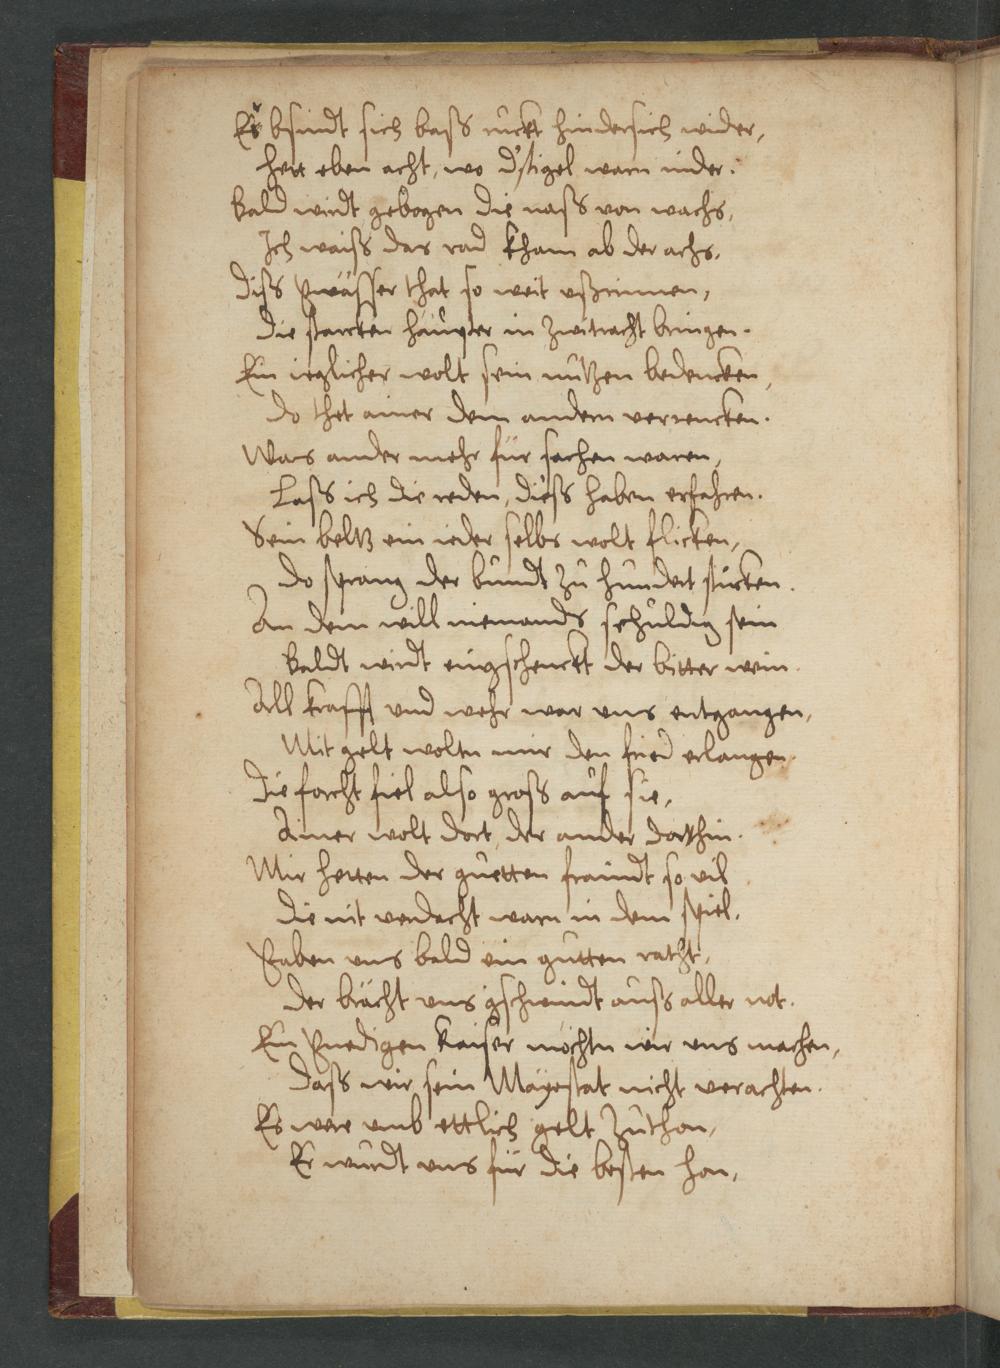 Er bsindt sich bass ruckt hindersich wider,
hett eben acht, wo d'stigel warn nider.
Bald wirdt gebogen die nass von wachs,
Ich waiss das rad kham ab der achs,
Diss gwässer that so weit ussrinnen,
Die starcken häupter in zwitracht bringen.
Ein ieglicher wolt sein nutzen bedencken,
Do thet ainer dem andern verrencken.
Was ander mehr für sachen waren,
Lass ich die reden, diess haben erfahren.
Sein beltz ein ieder selbs wolt flicken,
Do sprang der bundt zu hundert stucken.
An dem will niemands schuldig sein
Baldt wirdt eingschenckt der bitter wein.
All krafft und wehr war uns entgangen,
Mit gelt woltn mir den frid erlangen.
Die forcht fiel also gross auf sie,
Ainer wolt dort, der ander dorthin.
Mir hetten der guetten fraindt so vil
die nit verdacht warn in dem spiel.
Gaben uns bald ein gutten rath,
Der brächt uns gschwindt auss aller not.
Ein gnedigen kaiser möchtn wir uns machen,
Dass wir sein Mayestat nicht verachten.
Es were umb ettlich gelt zuthon,
Er wurdt uns für die besten hon,